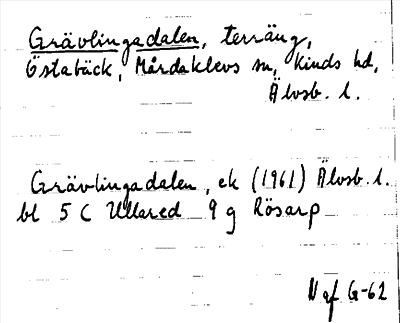 Grävlingadalen, terräng,
Östabäck, Mårdaklevs sn, Kinds hd,
Älvsb. l.
Grävlingadalen, ek (1961) Älvsb. l.
bl 5 C Ullared 9 g Rösarp
N gf G-62